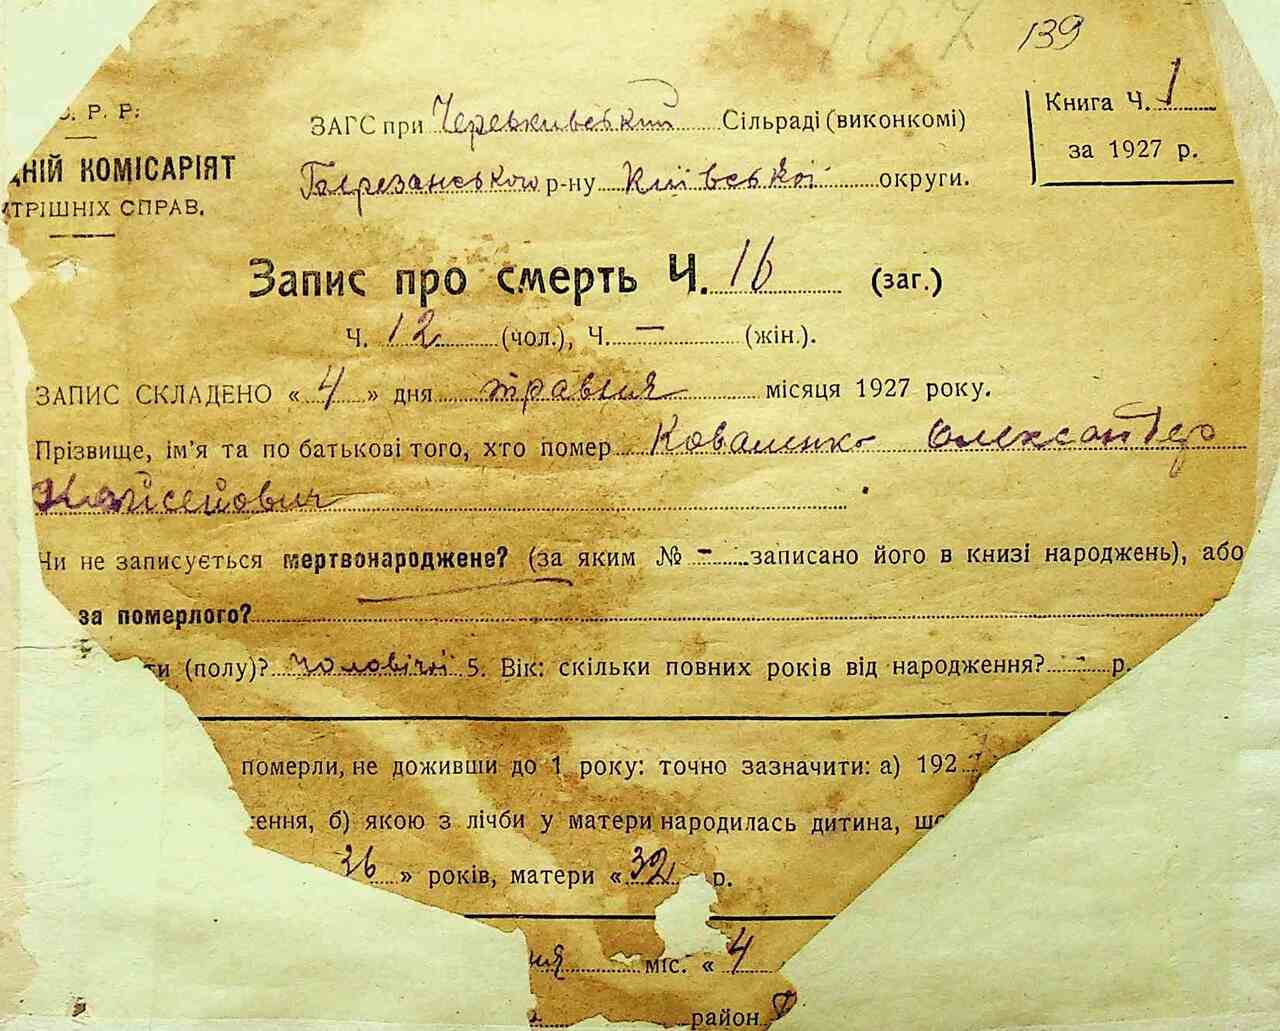 139
Р. Р.
ЗАГС при Черевківський Сільраді (виконкомі)
Книга Ч. 1
за 1927 р.
НІЙ КОМІСАРІЯТ
ТРІШНІХ СПРАВ.
Березанського р-ну Київської округи.
Запис про смерть Ч. 16 (заг.)
Ч. 12 (чол.), Ч. — (жін.).
ЗАПИС СКЛАДЕНО « 4 » дня травня місяця 1927 року.
Прізвище, ім'я та по батькові того, хто помер Коваленко Олександр
Чи не записується мертвонароджене? (за яким № - записано його в книзі народжень), або
за померлого?
ти (полу)? чоловічої 5. Вік: скільки повних років від народження? - р.
померли, не доживши до 1 року: точно зазначити: а) 192
ення, б) якою з лічби у матери народилась дитина, що
36 » років, матери « 32 р.
ня міс. « 4
район